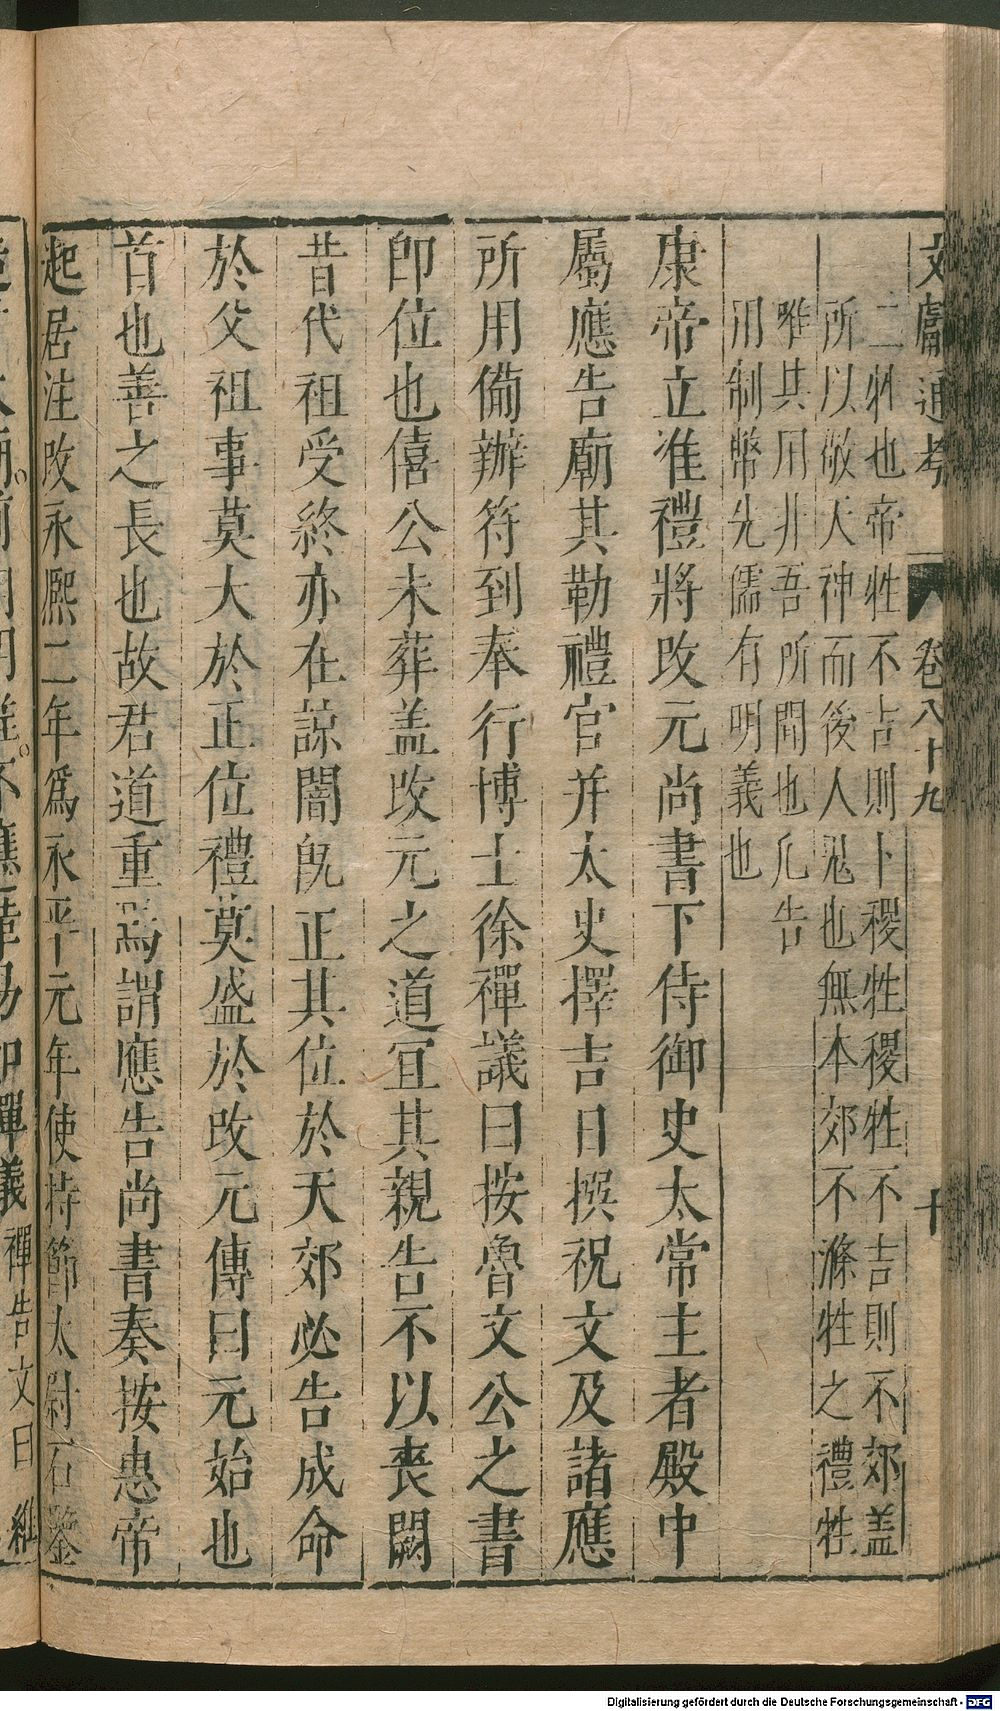 文獻通考 卷八十九 十
二牲也帝牲不吉則卜稷牲稷牲不吉則不郊盖
所以敬天神而後人鬼也無本郊不滌牲之禮牲
唯其用非吾所聞也凡告
用制幣先儒有明義也
康帝立准禮將改元尚書下侍御史太常主者殿中
屬應告廟其勒禮官并太史擇吉日撰祝文及諸應
所用備辦符到奉行博士徐禪議曰按魯文公之書
即位也僖公未葬盖改元之道宜其親告不以喪闕
昔代祖受終亦在諒闇既正其位於天郊必告成命
於父祖事莫大於正位禮莫盛於改元傳曰元始也
首也善之長也故君道重焉謂應告尚書奏按惠帝
起居注改永熙二年爲永平元年使持節太尉石鑒
禪議禪告文曰維
Digitalisierung gefördert durch die Deutsche Forschungsgemeinschaft - DFG